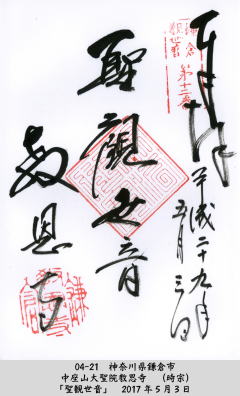 奉拝
平成二十九年
五月三日
鎌倉
観世音
第十二番
聖觀世音
教恩寺
04-21 神奈川県鎌倉市
中座山大聖院教恩寺 (時宗)
「聖観世音」 2017年5月3日